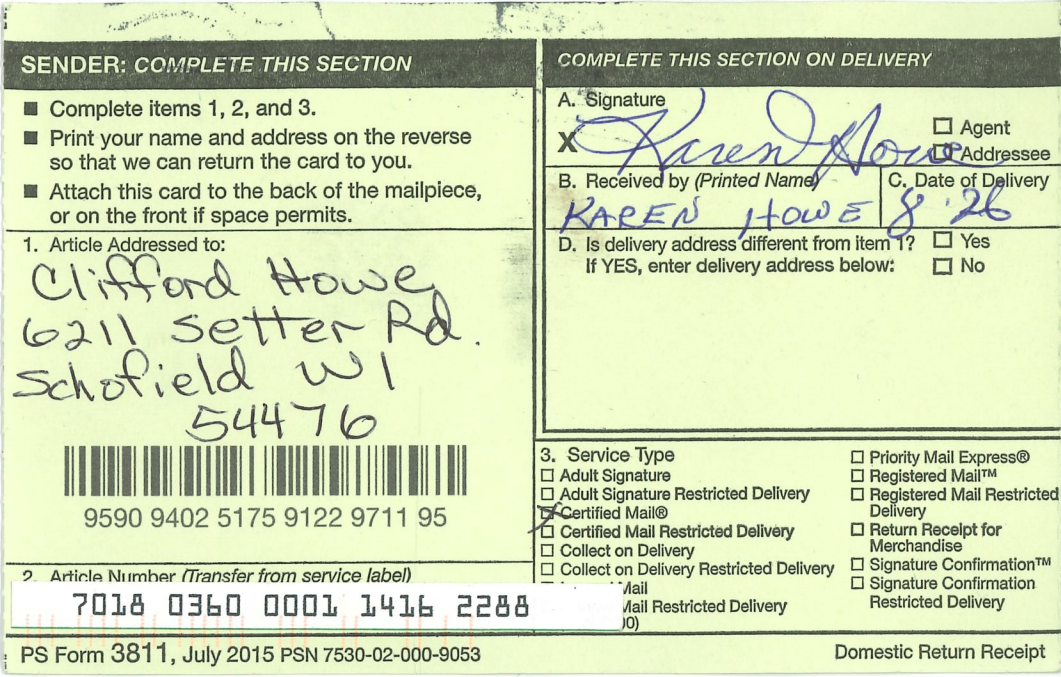 SENDER: COMPLETE THIS SECTION
■ Complete items 1, 2, and 3.
■ Print your name and address on the reverse
so that we can return the card to you.
■ Attach this card to the back of the mailpiece,
or on the front if space permits.
1. Article Addressed to:
Clifford Howe
6211 Setter Rd.
Schofield WI
54476
9590 9402 5175 9122 9711 95
2. Article Number (Transfer from service label)
7018 0360 0001 1416 2288
COMPLETE THIS SECTION ON DELIVERY
A. Signature
X Karen Howe
☐ Agent
☐ Addressee
B. Received by (Printed Name)
KAREN HOWE
C. Date of Delivery
8 26
D. Is delivery address different from item 1? ☐ Yes
If YES, enter delivery address below: ☐ No
3. Service Type
☐ Adult Signature
☐ Adult Signature Restricted Delivery
☒ Certified Mail®
☐ Certified Mail Restricted Delivery
☐ Collect on Delivery
☐ Collect on Delivery Restricted Delivery
Mail
Mail Restricted Delivery
00)
☐ Priority Mail Express®
☐ Registered Mail™
☐ Registered Mail Restricted
Delivery
☐ Return Receipt for
Merchandise
☐ Signature Confirmation™
☐ Signature Confirmation
Restricted Delivery
PS Form 3811, July 2015 PSN 7530-02-000-9053
Domestic Return Receipt